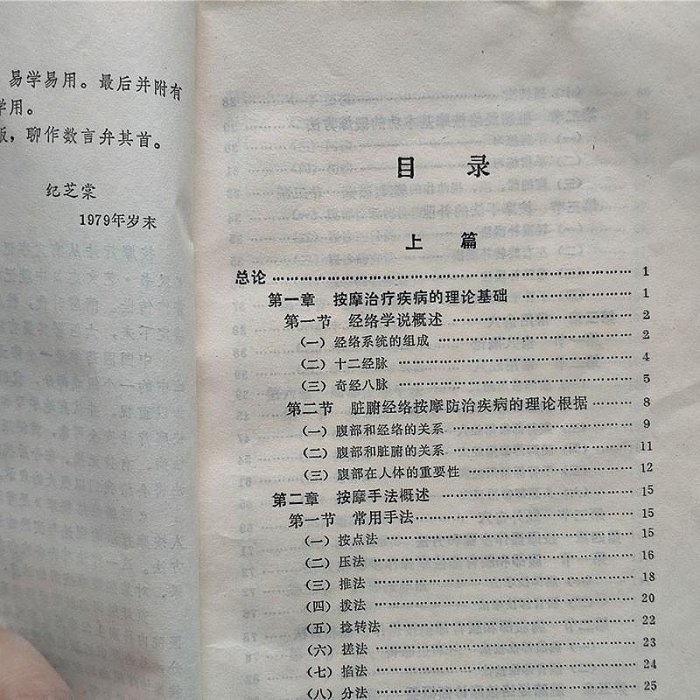 易学易用。最后并附有
学用。
版，聊作数言弁其首。
纪芝棠
1979年岁末
目 录
上 篇
总论 1
第一章 按摩治疗疾病的理论基础 1
第一节 经络学说概述 2
（一）经络系统的组成 2
（二）十二经脉 4
（三）奇经八脉 5
第二节 脏腑经络按摩防治疾病的理论根据 8
（一）腹部和经络的关系 9
（二）腹部和脏腑的关系 11
（三）腹部在人体的重要性 12
第二章 按摩手法概述 15
第一节 常用手法 15
（一）按点法 15
（二）压法 16
（三）推法 18
（四）拨法 20
（五）捻转法 22
（六）搓法 23
（七）掐法 24
（八）分法 25